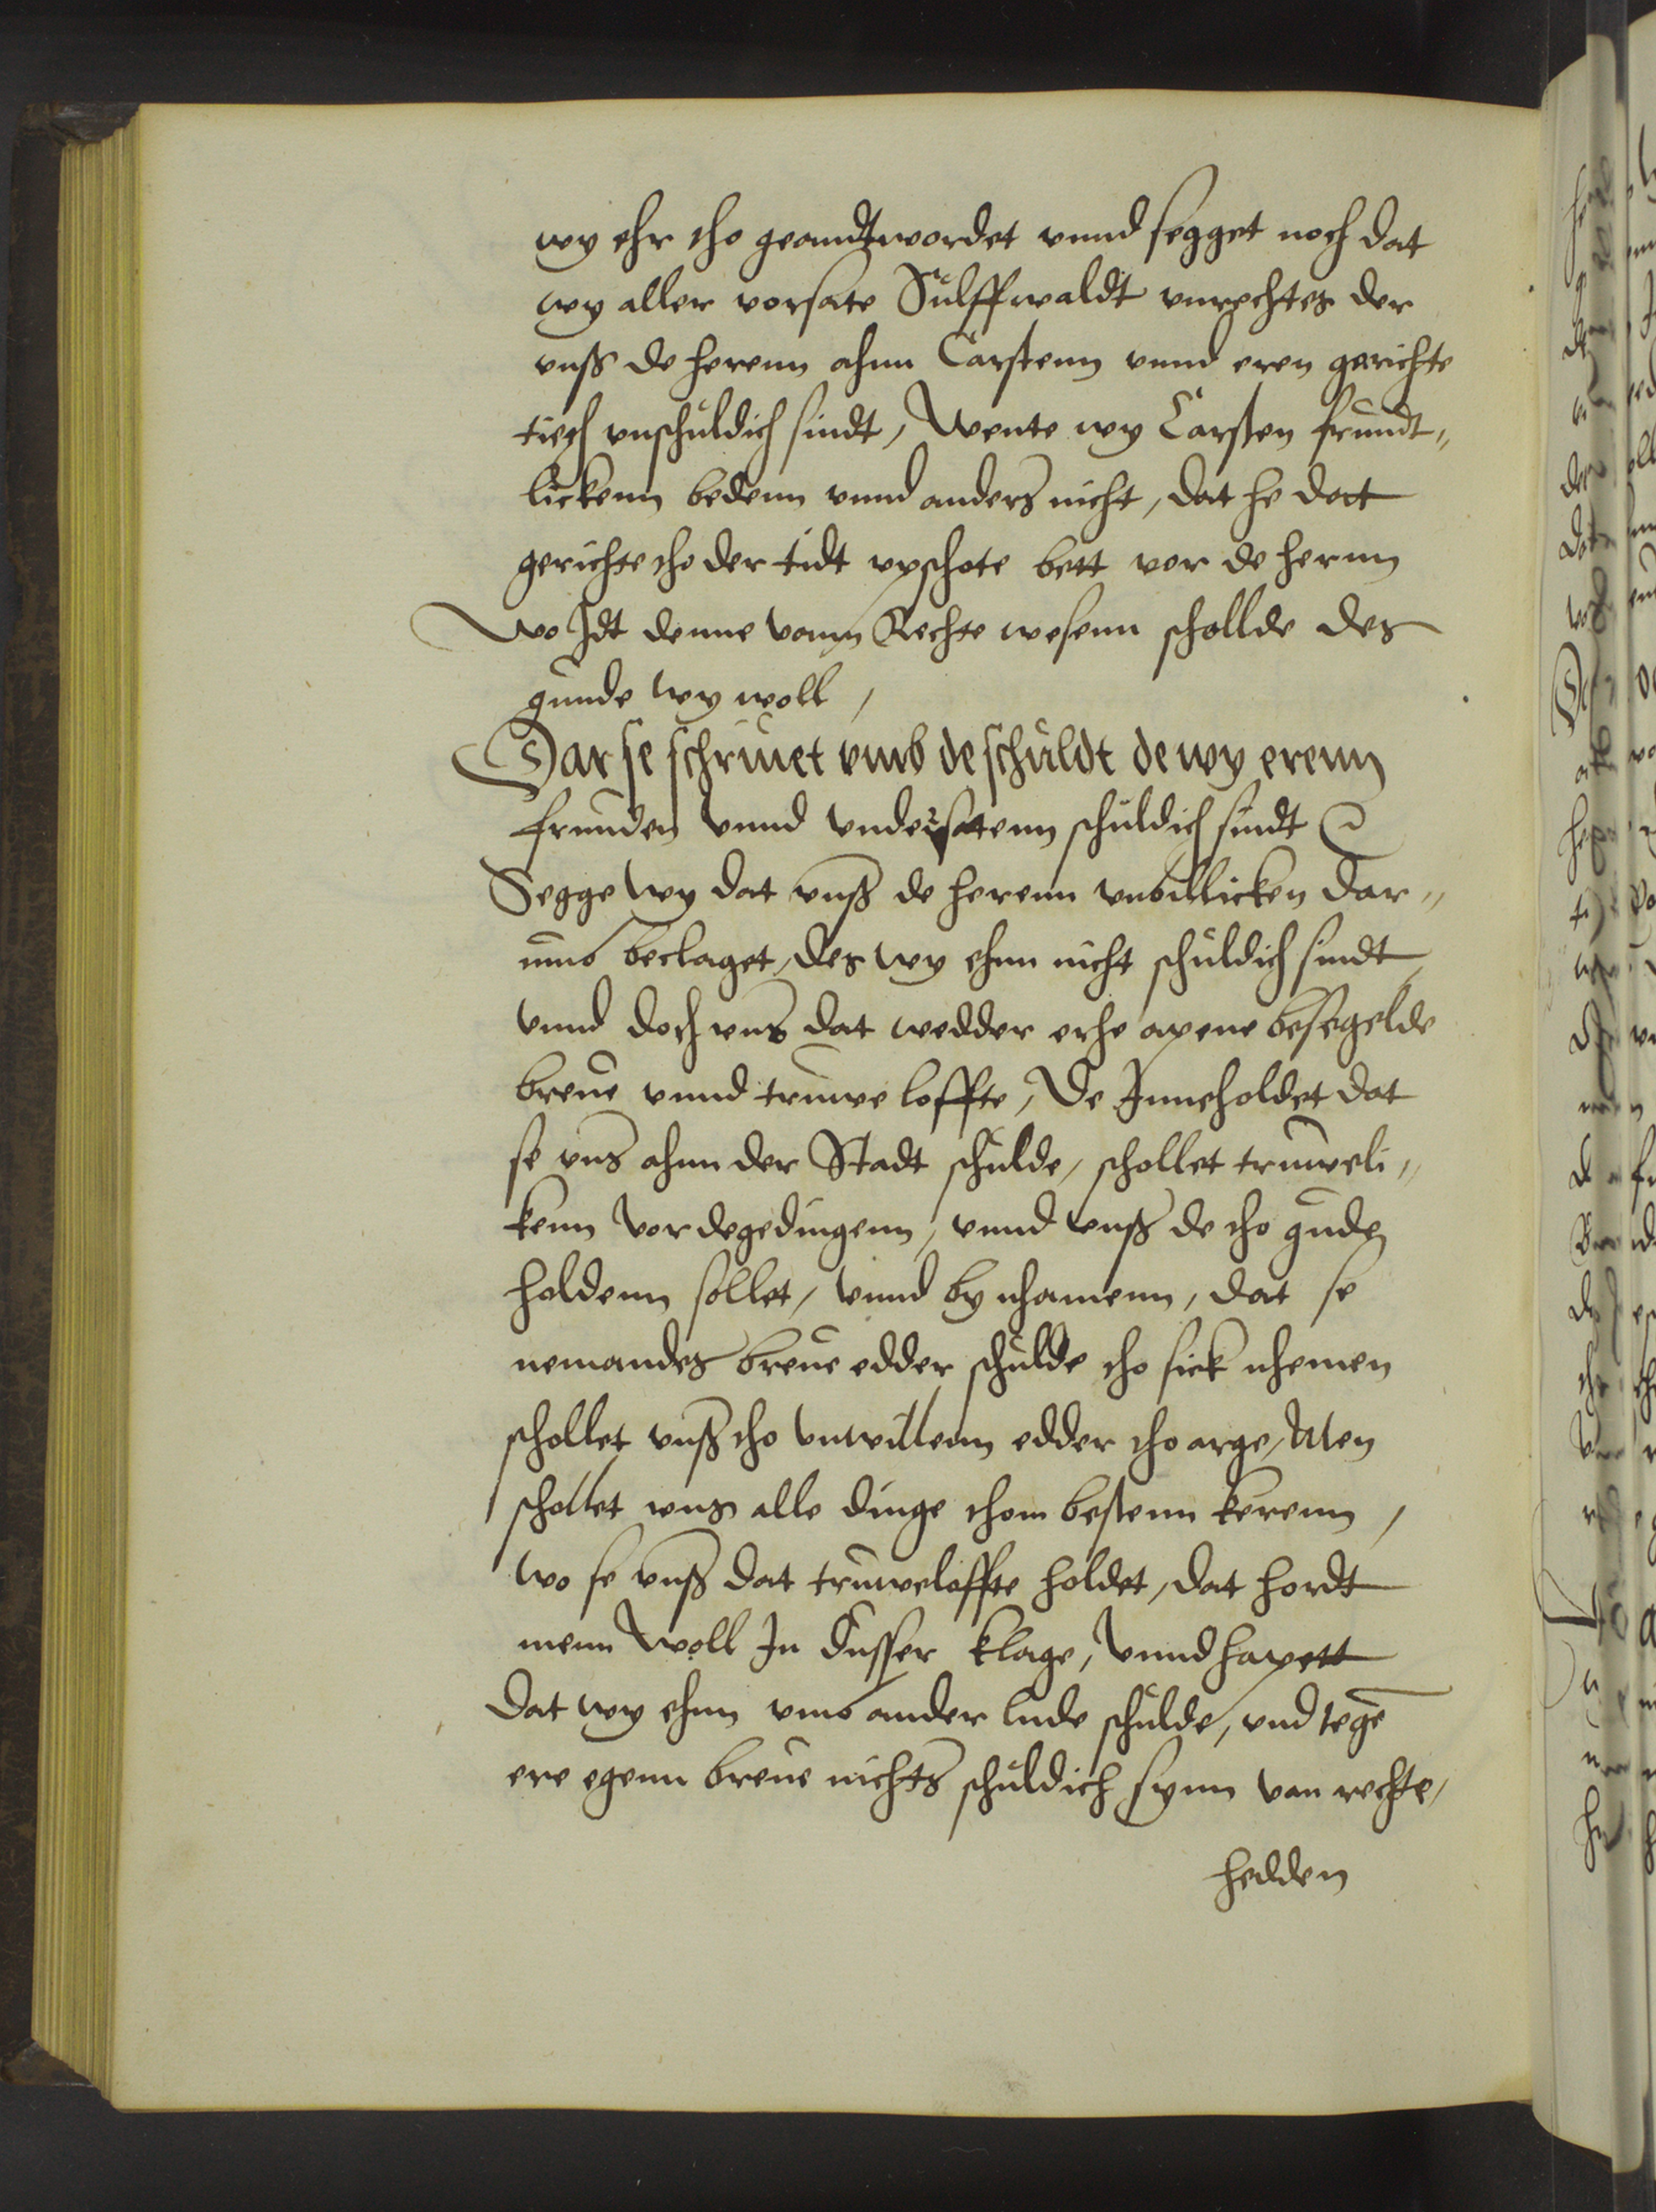 wy ehr tho geandtwordet vnnd segget noch dat
wy aller vorsate Sulffwaldt vnrechtes der
vnß de herenn ahnn Carstenn vnnd eren gerichte
tiech vnschuldich sindt, Wente wy Carsten frundt„
lickenn bedenn vnnd anders nicht, dat he dat
gerichte tho der tidt vpschote bett vor de hernn
Wo Idt denne vann Rechte wesenn schollde des
gunde wy woll,
Dar se schriuet vmb de schuldt de wy erenn
frunden vnnd vndersatenn schuldich sindt
Segge wy dat vnß de herenn vnbillicken dar„
umb beclaget, des wy ehnn nicht schuldich sindt,
vnnd doch vns dat wedder erhe apene besegelde
breue vnnd truwe loffte, De Inneholdet dat
se vns ahnn der Stadt schulde, schollet truweli„
kenn vordegedingenn, vnnd vnß de tho gude
holdenn sollet, vnnd by nhamenn, dat se
nemandes breue edder schulde tho sick nhemen
schollet vnß tho vnwillenn edder tho arge, Men
schollet vns alle dinge thom bestenn kerenn,
wo se vnß dat truweloffte holdet, dat hordt
menn woll In dusser klage, vnnd hapett
dat wy ehnn vmb ander lude schulde, vnd tege
ere egenn breue nichts schuldich synn van rechte,
hedden